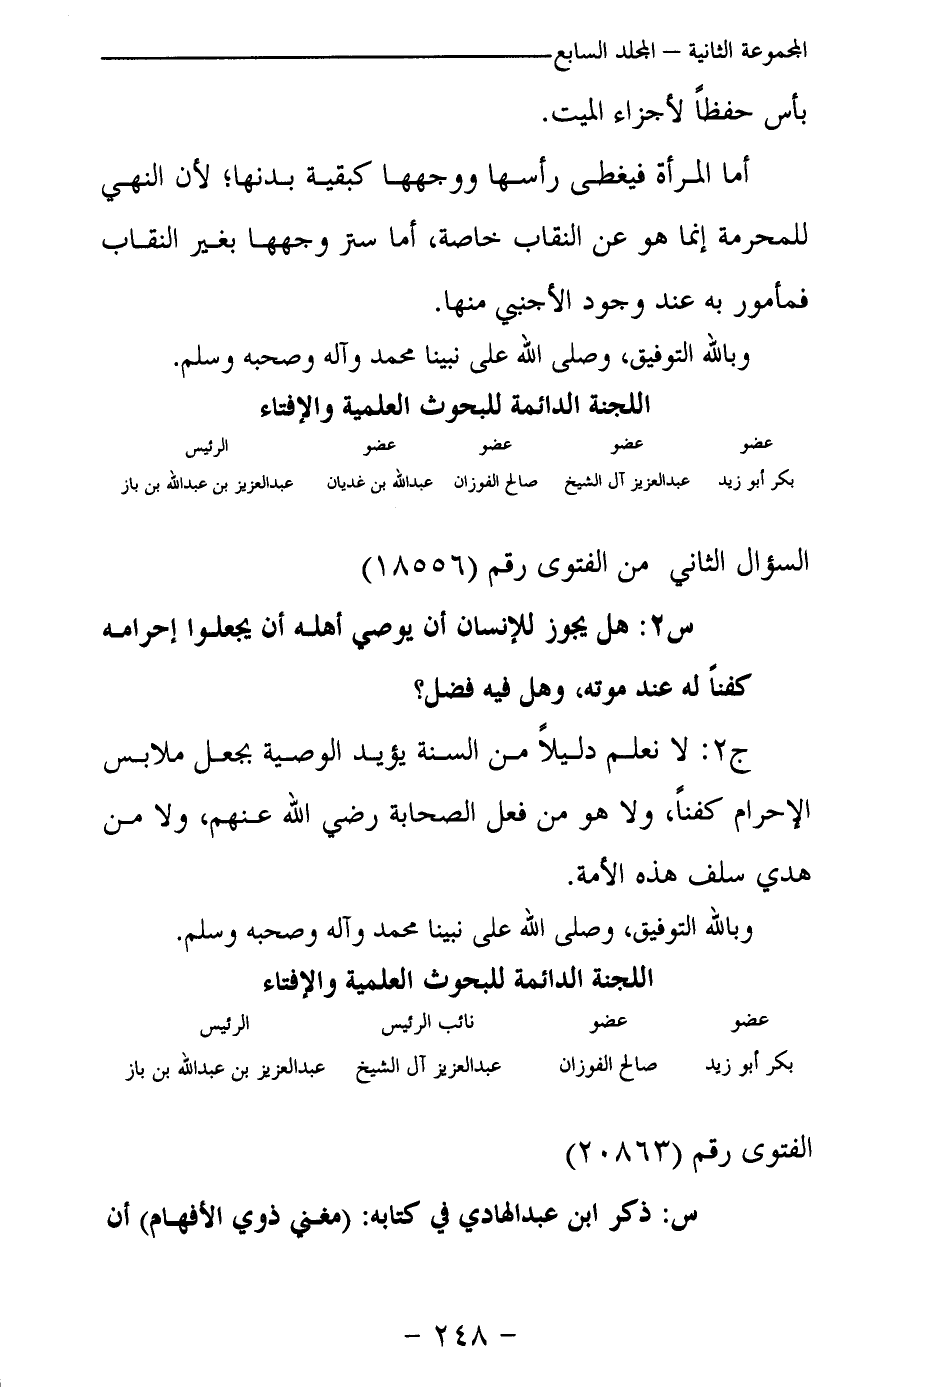 المجموعة الثانية – المجلد السابع
بأس حفظاً لأجزاء الميت.
أما المرأة فيغطى رأسها ووجهها كبقية بدنها؛ لأن النهي
للمحرمة إنما هو عن النقاب خاصة، أما ستر وجهها بغير النقاب
فمأمور به عند وجود الأجنبي منها.
وبالله التوفيق، وصلى الله على نبينا محمد وآله وصحبه وسلم.
اللجنة الدائمة للبحوث العلمية والإفتاء
عضو عضو عضو عضو الرئيس
بكر أبو زيد عبدالعزيز آل الشيخ صالح الفوزان عبدالله بن غديان عبدالعزيز بن عبدالله بن باز
السؤال الثاني من الفتوى رقم (١٨٥٥٦)
س٢: هل يجوز للإنسان أن يوصي أهله أن يجعلوا إحرامه
كفناً له عند موته، وهل فيه فضل؟
ج٢: لا نعلم دليلاً من السنة يؤيد الوصية بجعل ملابس
الإحرام كفناً، ولا هو من فعل الصحابة رضي الله عنهم، ولا من
هدي سلف هذه الأمة.
وبالله التوفيق، وصلى الله على نبينا محمد وآله وصحبه وسلم.
اللجنة الدائمة للبحوث العلمية والإفتاء
عضو عضو نائب الرئيس الرئيس
بكر أبو زيد صالح الفوزان عبدالعزيز آل الشيخ عبدالعزيز بن عبدالله بن باز
الفتوى رقم (٢٠٨٦٣)
س: ذكر ابن عبدالهادي في كتابه: (مغني ذوي الأفهام) أن
– ٢٤٨ –